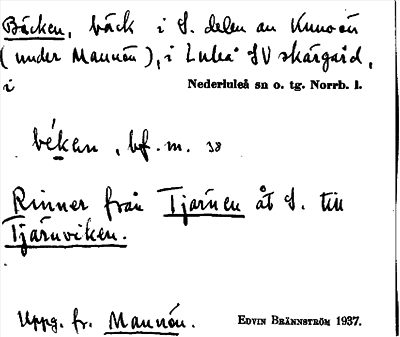 Bäcken, bäck i S. delen av Kunoön
(under Mannön), i Luleå SV skärgård,
i Nederluleå sn o. tg. Norrb. l.
békan, bf. m. 38
Rinner från Tjärnen åt S. till
Tjärnviken.
Uppg. fr. Mannön. EDVIN BRÄNNSTRÖM 1937.